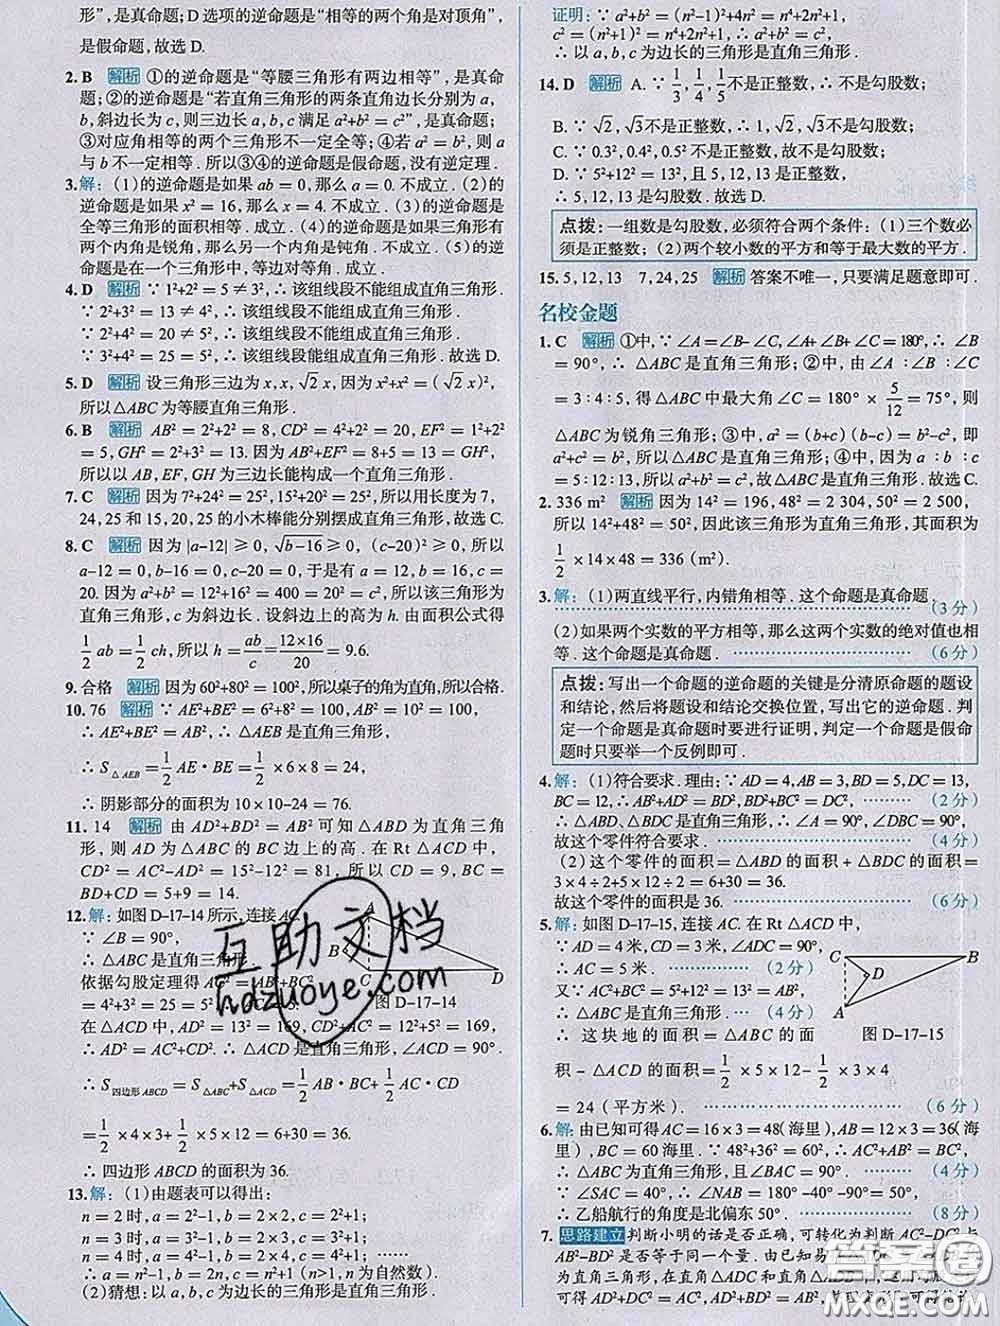 形”，是真命题；D 选项的逆命题是“相等的两个角是对顶角”，
是假命题，故选 D.
2. B 解析 ①的逆命题是“等腰三角形有两边相等”，是真命
题；②的逆命题是“若直角三角形的两条直角边长分别为 a，
b，斜边长为 c，则三边长 a，b，c 满足 a²+b²=c²”，是真命题；
③对应角相等的两个三角形不一定全等；④若 a²=b²，则 a
与 b 不一定相等. 所以③④的逆命题是假命题，没有逆定理.
3. 解：(1)的逆命题是如果 ab=0，那么 a=0. 不成立. (2)的
逆命题是如果 x²=16，那么 x=4. 不成立. (3)的逆命题是
全等三角形的面积相等. 成立. (4)的逆命题是如果三角形有
两个内角是锐角，那么另一个内角是钝角. 不成立. (5)的逆
命题是在一个三角形中，等边对等角. 成立.
4. D 解析 ∵ 1²+2²=5≠3²，∴ 该组线段不能组成直角三角形.
∵ 2²+3²=13≠4²，∴ 该组线段不能组成直角三角形.
∵ 2²+4²=20≠5²，∴ 该组线段不能组成直角三角形.
∵ 3²+4²=25=5²，∴ 该组线段能组成直角三角形. 故选 D.
5. D 解析 设三角形三边为 x，x，√2 x，因为 x²+x²=(√2 x)²，
所以△ABC 为等腰直角三角形.
6. B 解析 AB²=2²+2²=8，CD²=4²+2²=20，EF²=1²+2²
=5，GH²=2²+3²=13. 因为 AB²+EF²=8+5=13=GH²，
所以以 AB，EF，GH 为三边长能构成一个直角三角形.
7. C 解析 因为 7²+24²=25²，15²+20²=25²，所以用长度为 7，
24，25 和 15，20，25 的小木棒能分别摆成直角三角形，故选 C.
8. C 解析 因为|a-12|≥0，√(b-16)≥0，(c-20)²≥0，所以
a-12=0，b-16=0，c-20=0，于是有 a=12，b=16，c=
20. 因为 a²+b²=12²+16²=400=20²=c²，所以该三角形为
直角三角形，c 为斜边长. 设斜边上的高为 h. 由面积公式得
1/2 ab=1/2 ch，所以 h=ab/c=12×16/20=9.6.
9. 合格 解析 因为 60²+80²=100²，所以桌子的角为直角，所以合格.
10. 76 解析 ∵ AE²+BE²=6²+8²=100，AB²=10²=100，
∴ AE²+BE²=AB²，∴ △AEB 是直角三角形，
∴ S△AEB=1/2 AE·BE=1/2×6×8=24，
∴ 阴影部分的面积为 10×10-24=76.
11. 14 解析 由 AD²+BD²=AB² 可知△ABD 为直角三角
形，则 AD 为△ABC 的 BC 边上的高. 在 Rt△ACD 中，
CD²=AC²-AD²=15²-12²=81，所以 CD=9，BC=
BD+CD=5+9=14.
12. 解：如图 D-17-14 所示，连接 AC.
∵ ∠B=90°，
∴ △ABC 为直角三角形，
依据勾股定理得 AC²=AB²+BC²
=4²+3²=25=5²，∴ AC=5.
A
B
C
D
图 D-17-14
在△ACD 中，AD²=13²=169，CD²+AC²=12²+5²=169，
∴ AD²=AC²+CD²，∴ △ACD 是直角三角形，∠ACD=90°.
∴ S四边形ABCD=S△ABC+S△ACD=1/2 AB·BC+1/2 AC·CD
=1/2×4×3+1/2×5×12=6+30=36.
∴ 四边形 ABCD 的面积为 36.
13. 解：(1)由题表可以得出：
n=2 时，a=2²-1，b=2×2，c=2²+1；
n=3 时，a=3²-1，b=2×3，c=3²+1；
n=4 时，a=4²-1，b=2×4，c=4²+1；
∴ a=n²-1，b=2n，c=n²+1 (n>1，n 为自然数).
(2)猜想：以 a，b，c 为边长的三角形是直角三角形.
证明：∵ a²+b²=(n²-1)²+4n²=n⁴+2n²+1，
c²=(n²+1)²=n⁴+2n²+1，∴ a²+b²=c²，
∴ 以 a，b，c 为边长的三角形是直角三角形.
14. D 解析 A. ∵ 1/3，1/4，1/5不是正整数，∴ 不是勾股数；
B. ∵ √2，√3不是正整数，∴ 1，√2，√3不是勾股数；
C. ∵ 0.3²，0.4²，0.5²不是正整数，故不是勾股数；
D. ∵ 5²+12²=13²，且 5，12，13 是正整数，
∴ 5，12，13 是勾股数. 故选 D.
点拨：一组数是勾股数，必须符合两个条件：(1)三个数必
须是正整数；(2)两个较小数的平方和等于最大数的平方.
15. 5，12，13 7，24，25 解析 答案不唯一，只要满足题意即可.
名校金题
1. C 解析 ①中，∵ ∠A=∠B-∠C，∠A+∠B+∠C=180°，∴ ∠B
=90°，∴ △ABC 是直角三角形；②中，由∠A∶∠B∶∠C
=3∶4∶5，得△ABC 中最大角∠C=180°×5/12=75°，则
△ABC 为锐角三角形；③中，a²=(b+c)(b-c)=b²-c²，即
a²+c²=b²，故△ABC 为直角三角形；④中，因为 a∶b∶c
=5∶12∶13，所以 a²+b²=c²，故△ABC 为直角三角形. 故选 C.
2. 336 m² 解析 因为 14²=196，48²=2 304，50²=2 500，
所以 14²+48²=50²，因此该三角形为直角三角形，其面积为
1/2×14×48=336 (m²).
3. 解：(1)两直线平行，内错角相等. 这个命题是真命题.
(3 分)
(2)如果两个实数的平方相等，那么这两个实数的绝对值也相
等. 这个命题是真命题. (6 分)
点拨：写出一个命题的逆命题的关键是分清原命题的题设
和结论，然后将题设和结论交换位置，写出它的逆命题. 判
定一个命题是真命题时要进行证明，判定一个命题是假命
题时只要举一个反例即可.
4. 解：(1)符合要求. 理由：∵ AD=4，AB=3，BD=5，DC=13，
BC=12，∴ AB²+AD²=BD²，BD²+BC²=DC²， (2 分)
∴ △ABD、△BDC 是直角三角形，∴ ∠A=90°，∠DBC=90°，
故这个零件符合要求. (4 分)
(2)这个零件的面积=△ABD 的面积+△BDC 的面积=
3×4÷2+5×12÷2=6+30=36.
故这个零件的面积是 36. (6 分)
5. 解：如图 D-17-15，连接 AC. 在 Rt△ACD 中，
∵ AD=4 米，CD=3 米，∠ADC=90°，
∴ AC=5 米. (2 分)
又∵ AC²+BC²=5²+12²=13²=AB²，
∴ △ABC 是直角三角形. (4 分)
∴ 这块地的面积=△ABC 的面
积-△ACD 的面积=1/2×5×12-1/2×3×4
=24(平方米). (6 分)
C
B
D
A
图 D-17-15
6. 解：由已知可得 AC=16×3=48(海里)，AB=12×3=36(海
里)，BC=60 海里. ∵ 48²+36²=60²，∴ AC²+AB²=BC²，
∴ △ABC 为直角三角形，且∠BAC=90°. (4 分)
∵ ∠SAC=40°，∴ ∠NAB=180°-90°-40°=50°，
∴ 乙船航行的角度是北偏东 50°. (8 分)
7. 思路建立 判断小明的话是否正确，可转化为判断 AC²-DC²与
AB²-BD²是否等于同一个量. 由已知易
为直角三角形，在直角△ADC 和直角△
可得 AD²+DC²=AC²，AD²+BD²=AB²，
互助文档
hdzuoye.com
答案圈
MXQE.COM